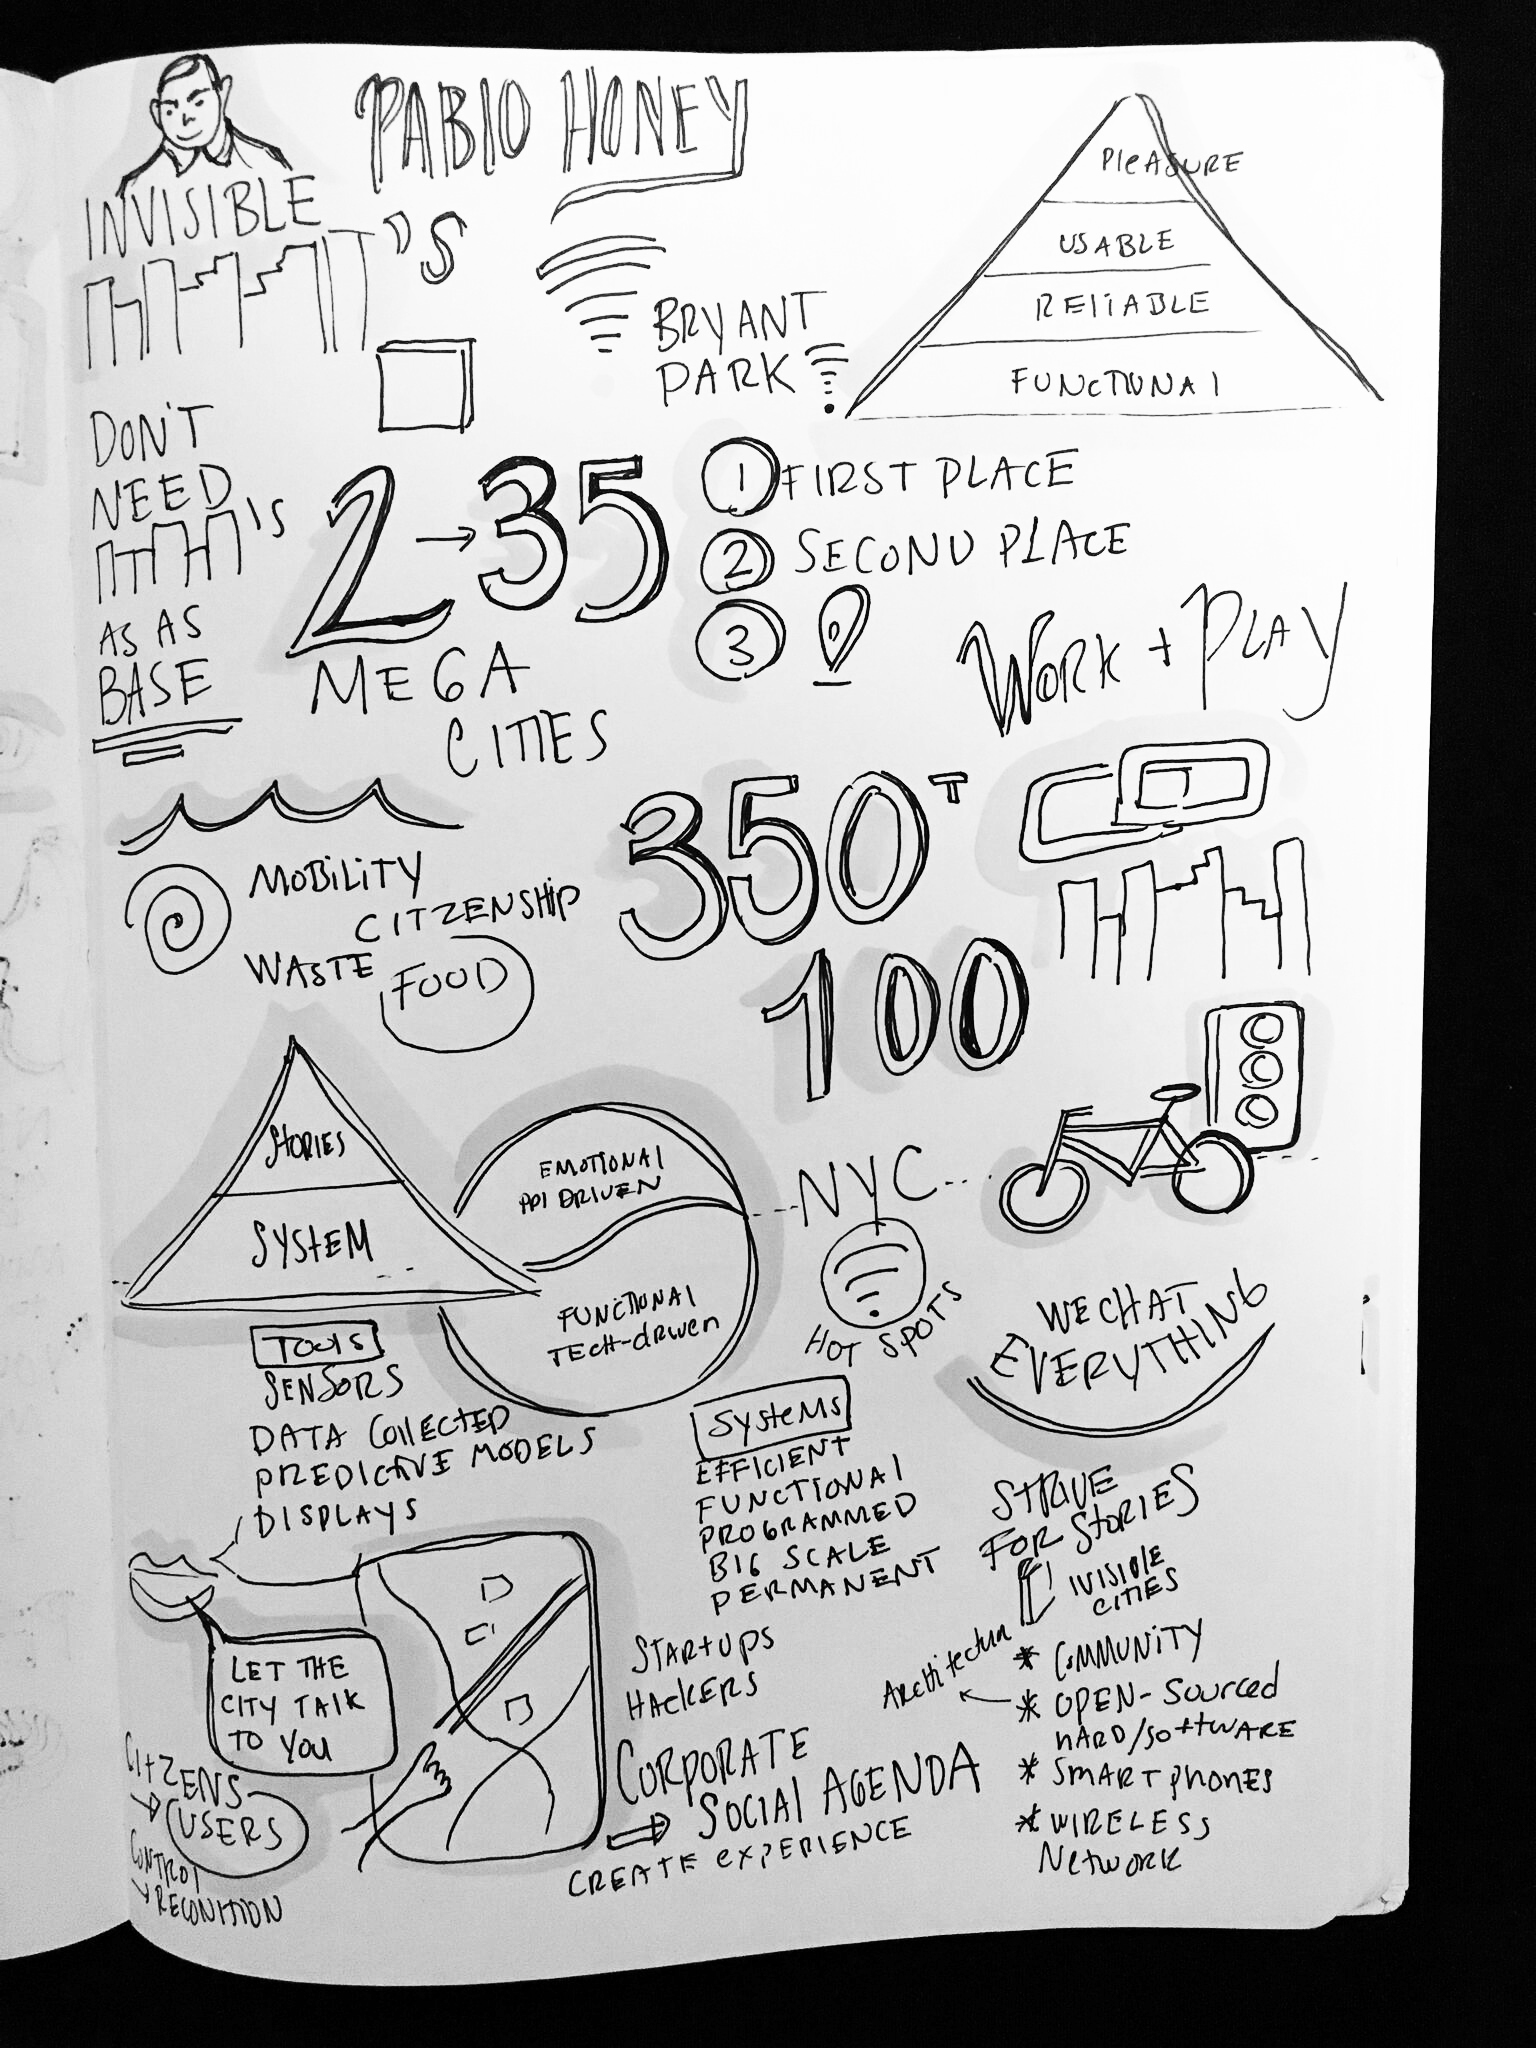 PABLO HONEY
INVISIBLE
'S
BRYANT
PARK
PleASURE
USABLE
RELIABLE
FUNCTIONAL
DON'T
NEED
'S
AS AS
BASE
2 → 35
MEGA
CITIES
1 FIRST PLACE
2 SECOND PLACE
3
WORK + PLAY
MOBILITY
CITZENSHIP
WASTE
FOOD
350T
100
STORIES
SYSTEM
EMOTIONAL
DRIVEN
FUNCTIONAL
TECH-driven
NYC
HOT SPOTS
WECHAT
EVERYTHING
TOOLS
SENSORS
DATA COLLECTED
PREDICTIVE MODELS
DISPLAYS
SYSTEMS
EFFICIENT
FUNCTIONAL
PROGRAMMED
BIG SCALE
PERMANENT
STRIVE
FOR STORIES
IVISIBLE
CITIES
ARCHitectur
* COMMUNITY
* OPEN-SOURCED
HARD/SOFTWARE
* SMARTPHONES
* WIRELESS
NETWORK
LET THE
CITY TALK
TO YOU
CITZENS
→ USERS
CONTROL
→ RECONITION
STARTUPS
HACKERS
CORPORATE
SOCIAL AGENDA
CREATE EXPERIENCE